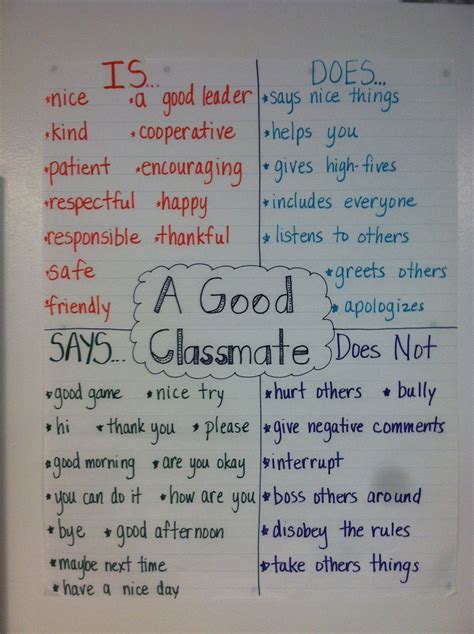 IS...
*nice *a good leader
*kind *cooperative
*patient *encouraging
*respectful *happy
*responsible *thankful
*safe
*friendly
DOES...
*says nice things
*helps you
*gives high-fives
*includes everyone
*listens to others
*greets others
*apologizes
A Good
Classmate
SAYS...
*good game *nice try
*hi *thank you *please
*good morning *are you okay
*you can do it *how are you
*bye *good afternoon
*maybe next time
*have a nice day
Does Not
*hurt others *bully
*give negative comments
*interrupt
*boss others around
*disobey the rules
*take others things